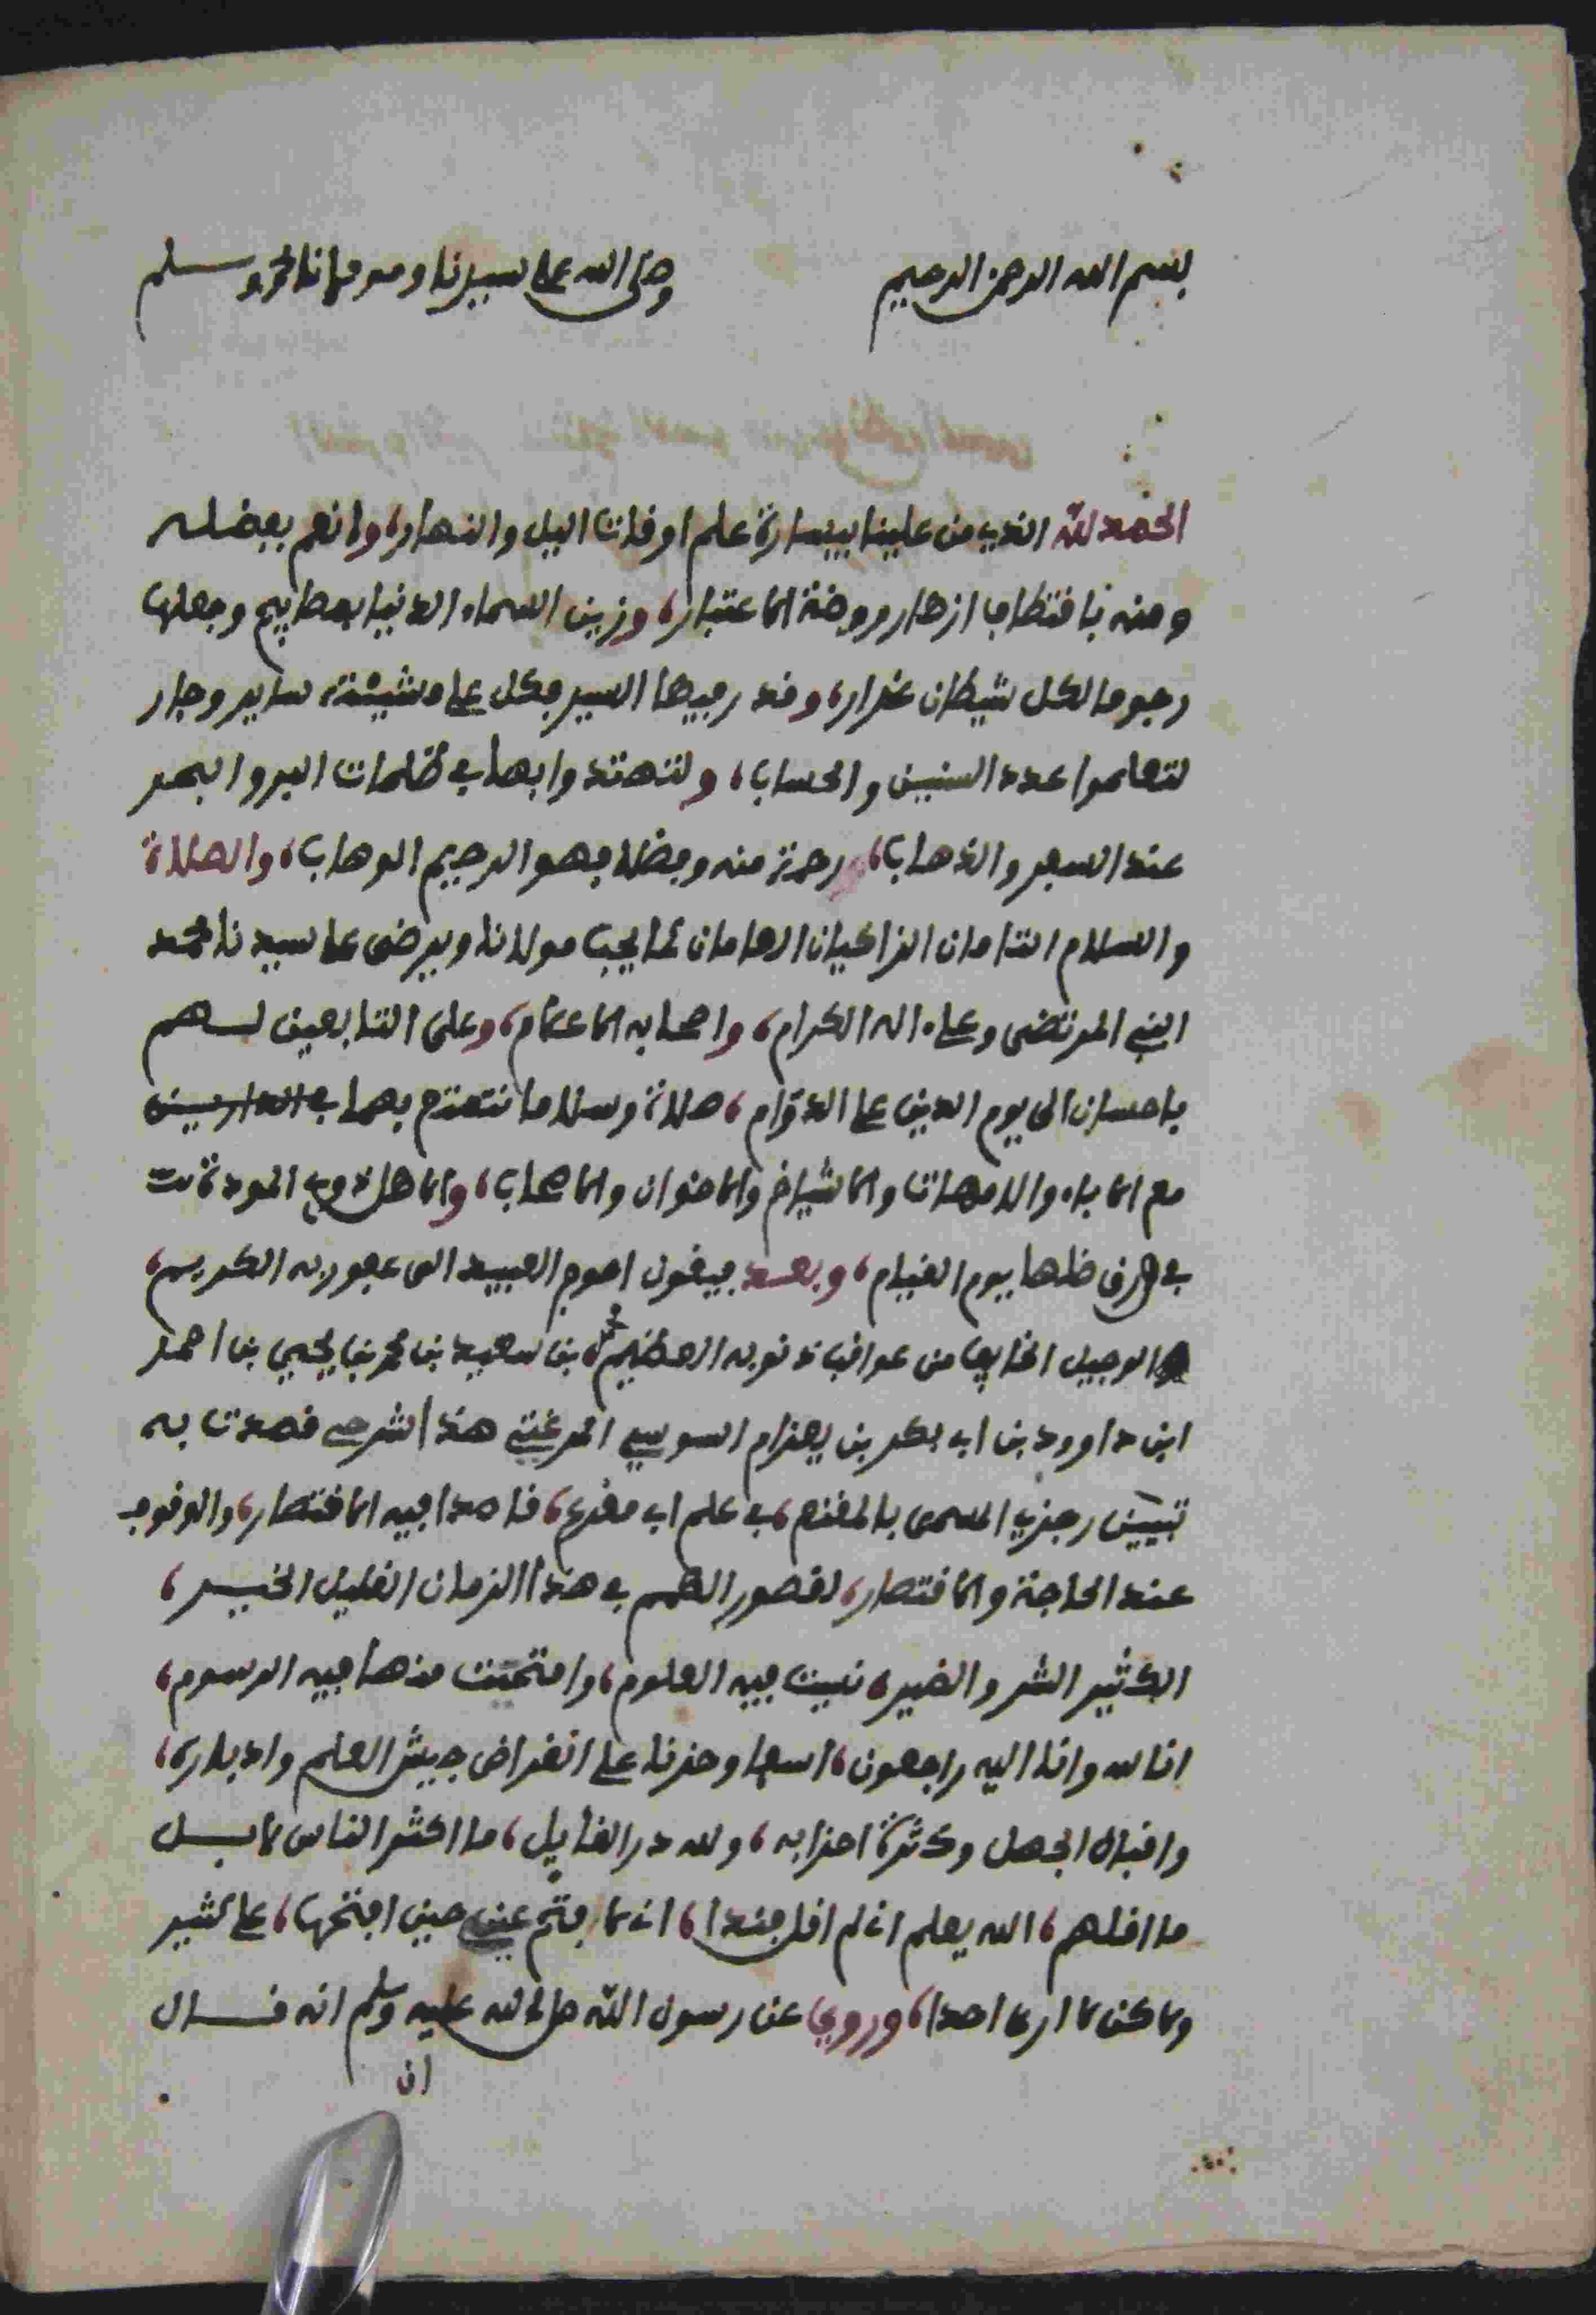 بسم الله الرحمن الرحيم وصلى الله على سيدنا ومولانا محمد وسلم
الحمد لله الذي من علينا بيسارة علم اوقات اليل والنهار، وانعم بفضله
ومنه باقتطاف ازهار روضة الاعتبار، وزين السماء الدنيا بمصابيح وجعلها
رجوما لكل شيطان غرار، وقدر فيها السير فكل على مشيئته ساير وجار
لتعلموا عدد السنين والحساب، ولتهتدوا بها في ظلمات البر والبحر
عند السفر والذهاب، رحمة منه وفضلا فهو الرحيم الوهاب، والصلاة
والسلام التامان الزاكيان العامان كما يحب مولانا ويرضى على سيدنا محمد
النبي المرتضى وعلى ءاله الكرام، واصحابه الاعلام، وعلى التابعين لهم
باحسان الى يوم الدين على الدوام، صلاة وسلاما ننتفع بهما في الدارين
مع الاباء والامهات والاشياخ والاخوان والاصحاب، والاهل وذوي المودة
في ظلها يوم القيام، وبعد فيقول احوج العبيد الى عفو ربه الكريم،
الوجيل الخايف من عواقب ذنوبه العظيم، محمد بن سعيد بن محمد بن يحيى بن احمد
ابن داوود بن ابي بكر بن يعزى السوسي المرغتي هذا شرح قصدت به
تبيين رجزي المسمى بالمقنع، في علم ابي مقرع، قاصدا فيه الاختصار، والوقوف
عند الحاجة والاقتصار، لقصور الهمم في هذا الزمان القليل الخير،
الكثير الشر والضير، نسيت فيه العلوم، وامتحت منها فيه الرسوم،
انا لله وانا اليه راجعون، اسفا وحزنا على انقراض جيش العلم وادباره،
واقبال الجهل وكثرة احزابه، ولله در القايل، ما اكثر الناس لا بل
ما اقلهم، الله يعلم اني لم اقل فندا، اني لافتح عيني حين افتحها، على كثير
ولاكن لا ارى احدا، وروي عن رسول الله صلى الله عليه وسلم انه قال
ان